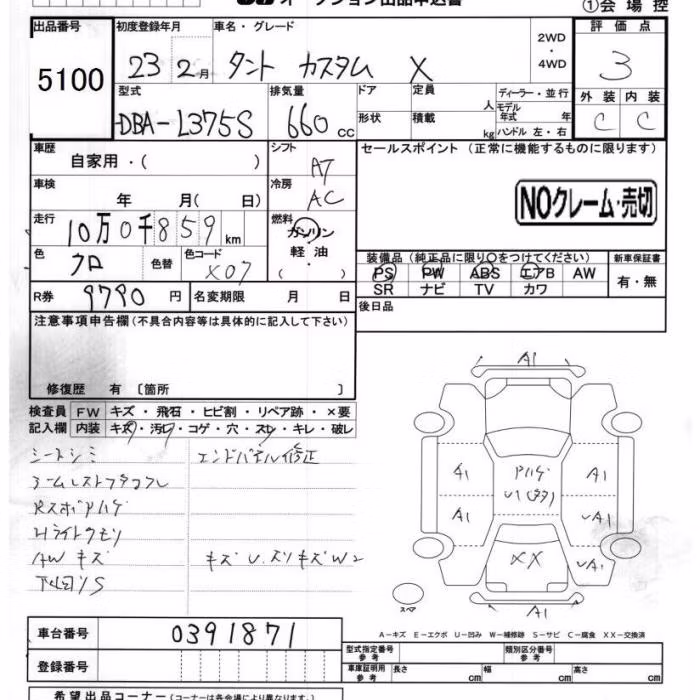 オークション出品申込書 ①会場控
出品番号 初度登録年月 車名・グレード 評価点
5100 23 2月 タント カスタム X 2WD・4WD 3
型式 排気量 ドア 定員 人 ディーラー・並行 外装 内装
DBA-L375S 660cc 形状 積載 kg モデル年式 年 ハンドル 左・右 C C
車歴 自家用・( ) シフト AT セールスポイント (正常に機能するものに限ります)
車検 年 月( 日) 冷房 AC NOクレーム・売切
走行 10万0千859km 燃料 ガソリン・軽油・( )
色 クロ 色替 色コード X07 装備品 (純正品に限り○をつけてください) 新車保証書
PS PW ABS エアB AW 有・無
SR ナビ TV カワ
R券 9790円 名変期限 月 日 後日品
注意事項申告欄 (不具合内容等は具体的に記入して下さい)
修復歴 有 〔箇所 〕
検査員 FW キズ・飛石・ヒビ割・リペア跡・×要
記入欄 内装 キズ・汚レ・コゲ・穴・スレ・キレ・破レ
シートシミ エンドパネル修正
Rスポアハゲ
Hライトクモリ
AW キズ キズU.スリキズW2
下回リS
A1
A1 アハゲ A1
A1 U1(多数) UA1
XX UA1
スペア A1
A-キズ E-エクボ U-凹み W-補修跡 S-サビ C-腐食 XX-交換済
車台番号 0391871 型式指定番号 参考 類別区分番号 参考
登録番号 車庫証明用 参考 長さ cm 幅 cm 高さ cm
希望出品コーナー (コーナーは各会場により異なります)